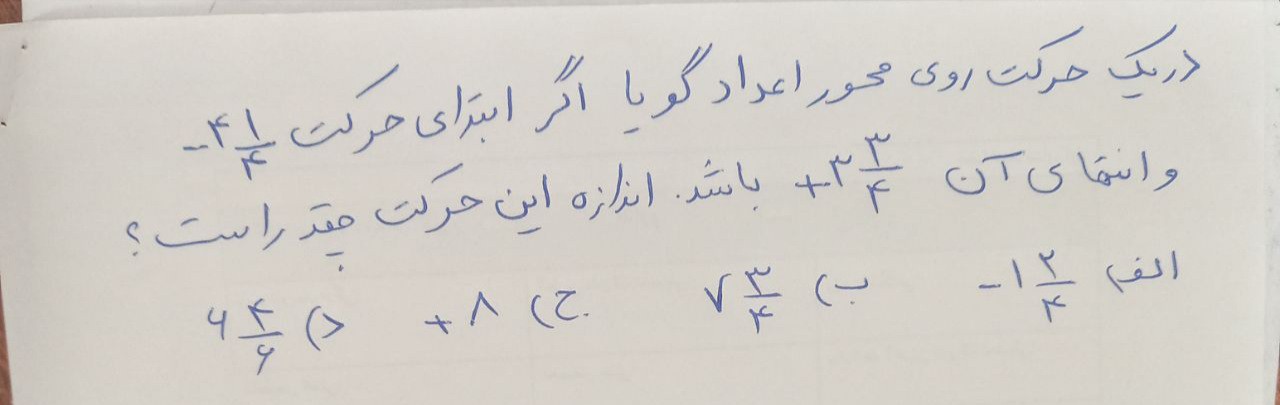 در یک حرکت روی محور اعداد گویا اگر ابتدای حرکت -۴ ۱/۴
و انتهای آن +۳ ۳/۴ باشد. اندازه این حرکت چقدر است؟
الف) -۱ ۲/۴ ب) ۷ ۳/۴ ج) +۸ د) ۶ ۴/۶